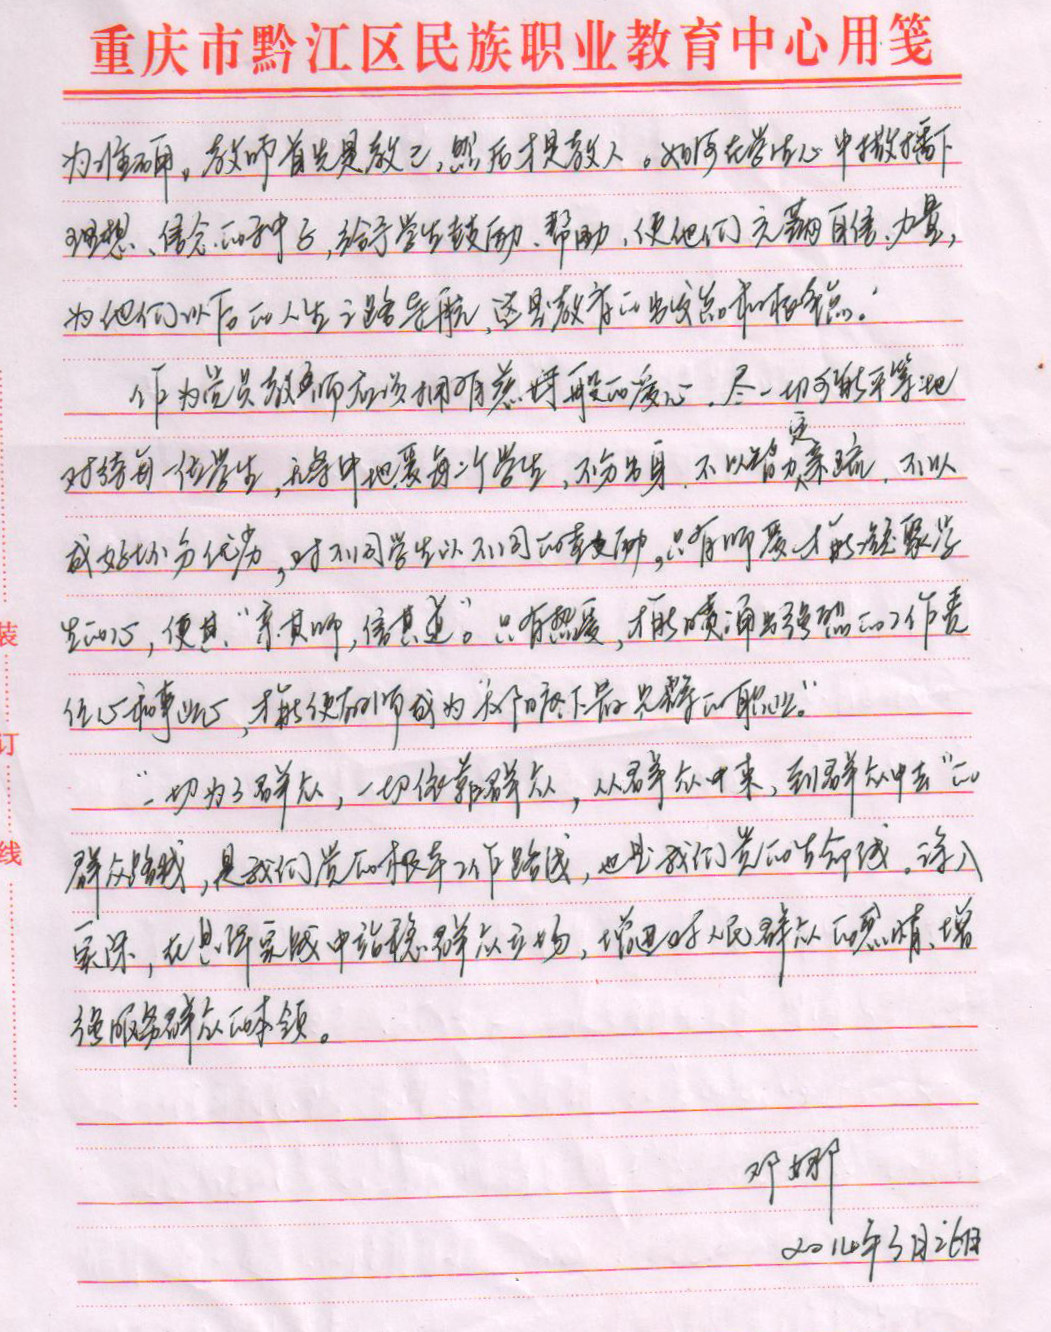 重庆市黔江区民族职业教育中心用笺
为准而用。教师首先是教己,然后才是教人。如何在学生心中撒播下
理想、信念的种子,给予学生鼓励、帮助,使他们充满自信、力量,
为他们以后的人生之路导航,这是教育的出发点和根本点。
作为党员教师应该拥有慈母般的爱心,尽一切可能平等地
对待每一位学生,无条件地爱每一个学生,不分出身、不以智力定亲疏,不以
成好坏分优劣,对不同学生以不同的鼓励。只有师爱才能凝聚学
生的心,使其"亲其师,信其道"。只有热爱,才能喷涌出强烈的工作责
任心和事业心,才能使教师成为"太阳底下最光辉的职业。"
"一切为了群众,一切依靠群众,从群众中来,到群众中去"的
群众路线,是我们党的根本工作路线,也是我们党的生命线。深入
实际,在具体实践中站稳群众立场,增进对人民群众的感情、增
强服务群众的本领。
邓娜
2014年3月26日
装
订
线